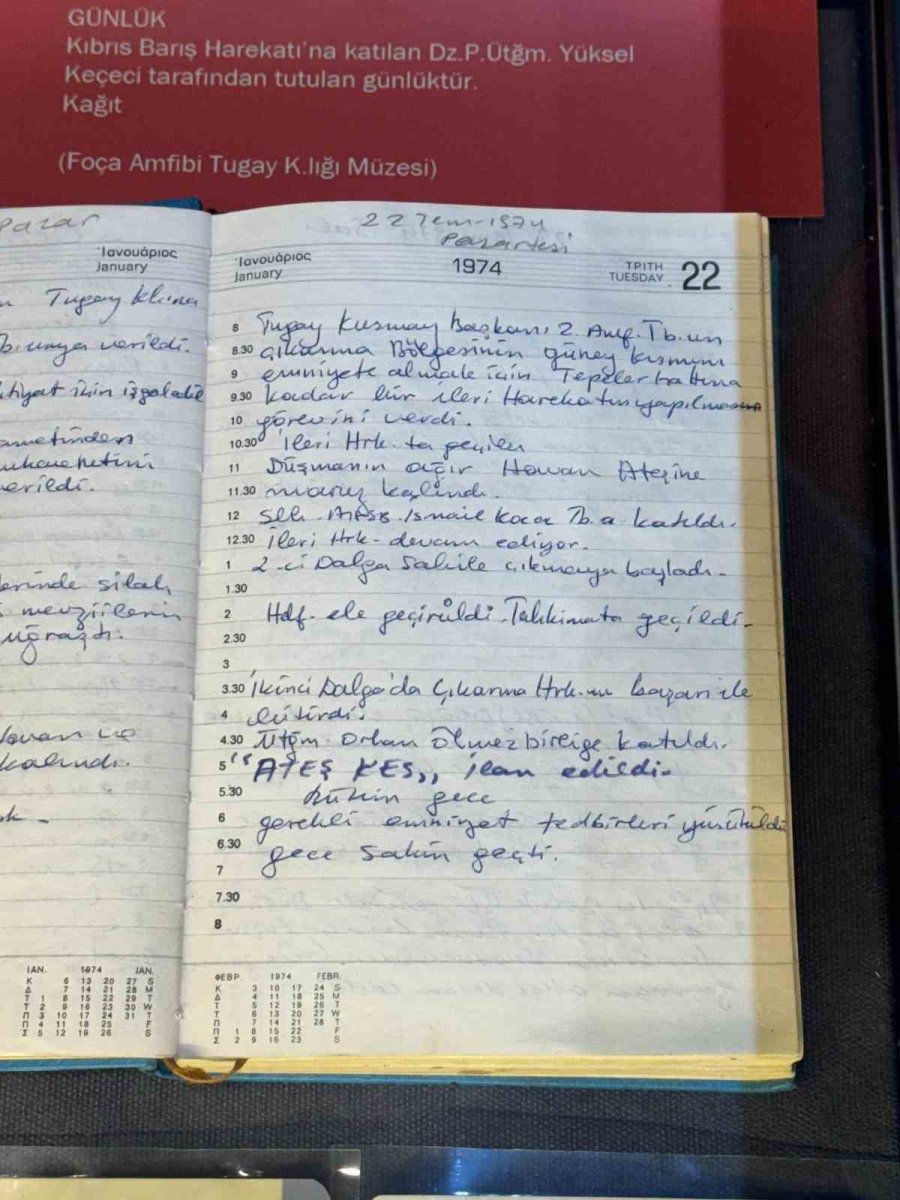 GÜNLÜK
Kıbrıs Barış Harekatı'na katılan Dz.P.Ütğm. Yüksel
Keçeci tarafından tutulan günlüktür.
Kağıt
(Foça Amfibi Tugay K.lığı Müzesi)
Pazar
Ἰανουάριος
January
Tugay Klına
verildi.
ihtiyat için işgal edil
verildi.
lerinde silah
mevziilerin
uğraştı.
Havan ve
kalındı.
IAN. 1974 JAN.
Κ 6 13 20 27 S
Δ 7 14 21 28 M
Τ 1 8 15 22 29 T
Τ 2 9 16 23 30 W
Π 3 10 17 24 31 T
Π 4 11 18 25 F
Σ 5 12 19 26 S
22 Tem-1974
Pazartesi
Ἰανουάριος
January
1974
ΤΡΙΤΗ
TUESDAY
22
8 Tugay Kurmay Başkanı 2. Amf. Tb. un
8.30 çıkarma Bölgesinin güney kısmını
9 emniyete almak için Tepeler hattına
9.30 kadar bir ileri Harekatın yapılması
10 görevini verdi.
10.30 İleri Hrk. ta geçilen
11 Düşmanın ağır Havan Ateşine
11.30 maruz kalındı.
12 Slh. Atğs. İsmail Koca Tb. a katıldı.
12.30 İleri Hrk- devam ediyor.
1 2-ci Dalga Sahile çıkmaya başladı-
1.30
2 Hdf. ele geçirüldi. Tahkimata geçildi.
2.30
3
3.30 İkinci Dalga'da Çıkarma Hrk.nı başarı ile
4 bitirdi.
4.30 Ütğm. Orhan Ölmez birliğe katıldı.
5 "ATEŞ KES,, ilan edildi.
5.30 Bütün gece
6 gerekli emniyet tedbirleri yürütüldü
6.30 gece Sakin geçti.
7
7.30
8
ΦΕΒΡ. 1974 FEBR.
Κ 3 10 17 24 S
Δ 4 11 18 25 M
Τ 5 12 19 26 T
Τ 6 13 20 27 W
Π 7 14 21 28 T
Π 1 8 15 22 F
Σ 2 9 16 23 S